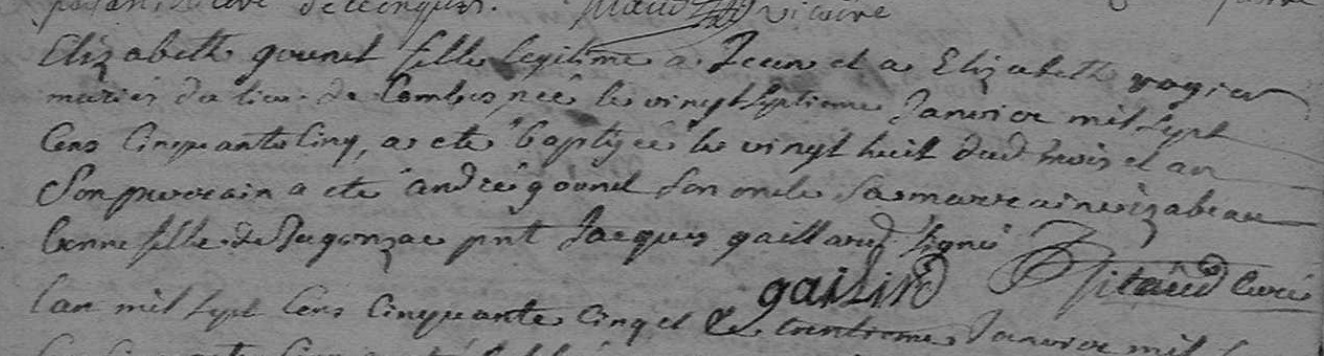 vicaire
Elizabeth gounel fille legitime a Jean et a Elizabeth rogier
mariés du lieu de Combes née le vingt septieme Janvier mil sept
Cens Cinquante Cinq, a eté baptizée le vingt huit dud mois et an
Son parrain a eté andré gounel son oncle sa marraine izabeau
bonnefille de Jugonzac pnt Jacques gaillard signé
gailard Ritaud Curé
lan mil sept Cens Cinquante Cinq et le trentieme Janvier mil